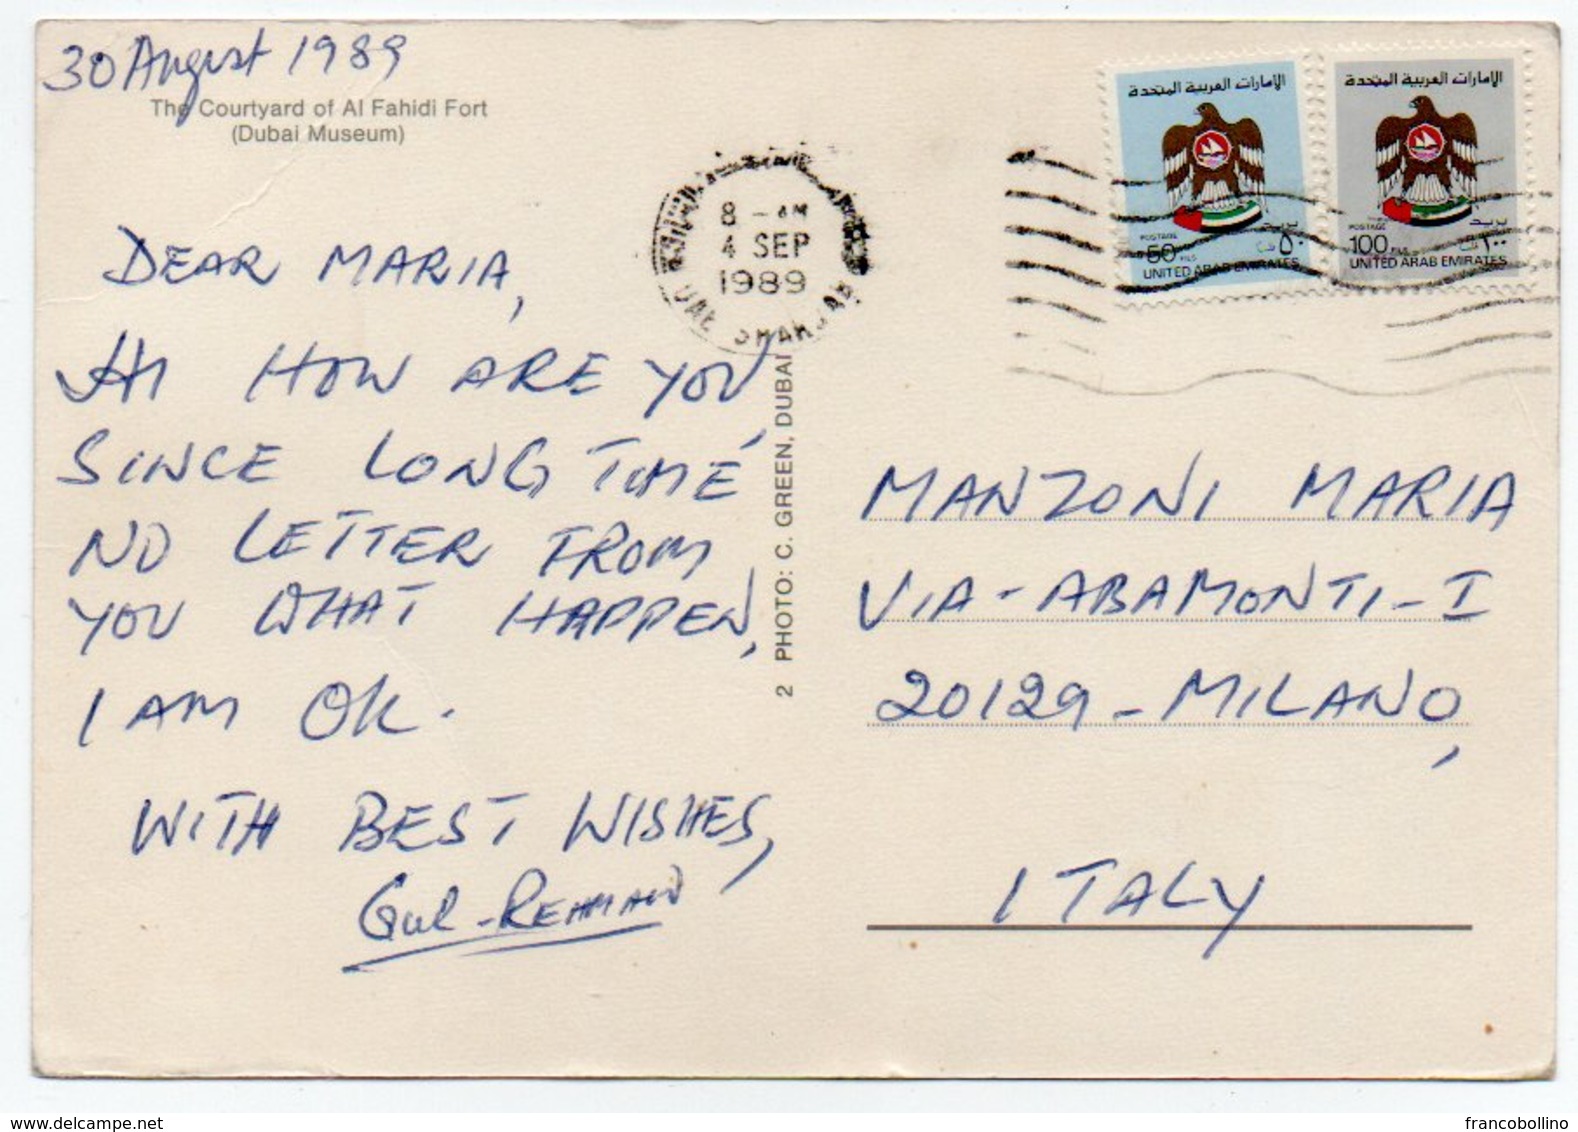 30 August 1989
The Courtyard of Al Fahidi Fort
(Dubai Museum)
DEAR MARIA,
HI HOW ARE YOU,
SINCE LONG TIME
NO LETTER FROM
YOU WHAT HAPPEN,
I AM OK.
WITH BEST WISHES,
GUL-REHMAN
2 PHOTO: C. GREEN, DUBAI
8 - AM
4 SEP
1989
UAE SHARJAH
الإمارات العربية المتحدة
POSTAGE
بريد
50 FILS
٥٠
UNITED ARAB EMIRATES
الإمارات العربية المتحدة
POSTAGE
بريد
100 FILS
١٠٠
UNITED ARAB EMIRATES
MANZONI MARIA
VIA-ABAMONTI-I
20129-MILANO,
ITALY
francobollino